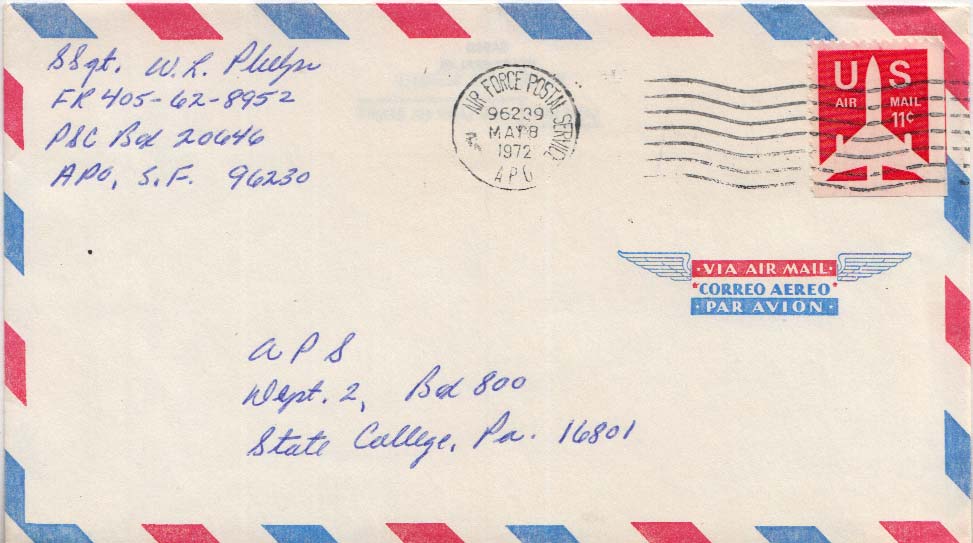 SSgt. W. L. Phelps
FR 405-62-8952
PSC Box 20646
APO, S.F. 96230
AIR FORCE POSTAL SERVICE
96239
MAY 8
1972
APO
U S
AIR MAIL
11¢
VIA AIR MAIL
CORREO AEREO
PAR AVION
A P S
Dept. 2, Box 800
State College, Pa. 16801